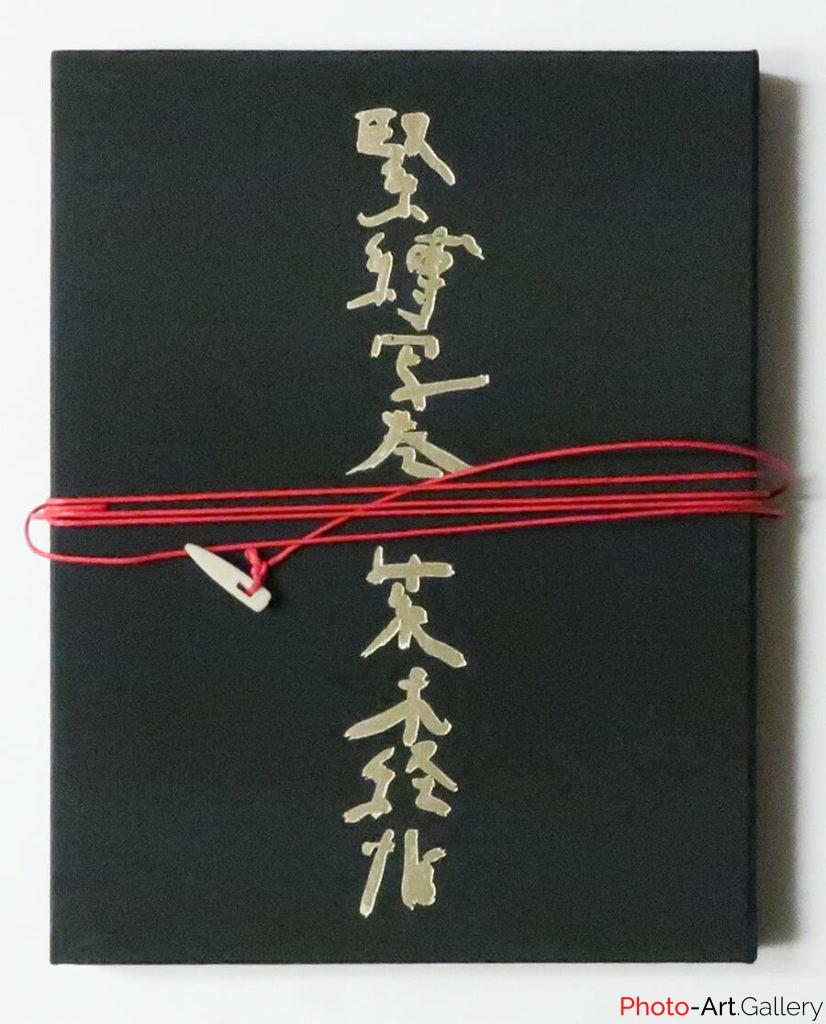 緊縛写巻
荒木経惟
Photo-Art.Gallery